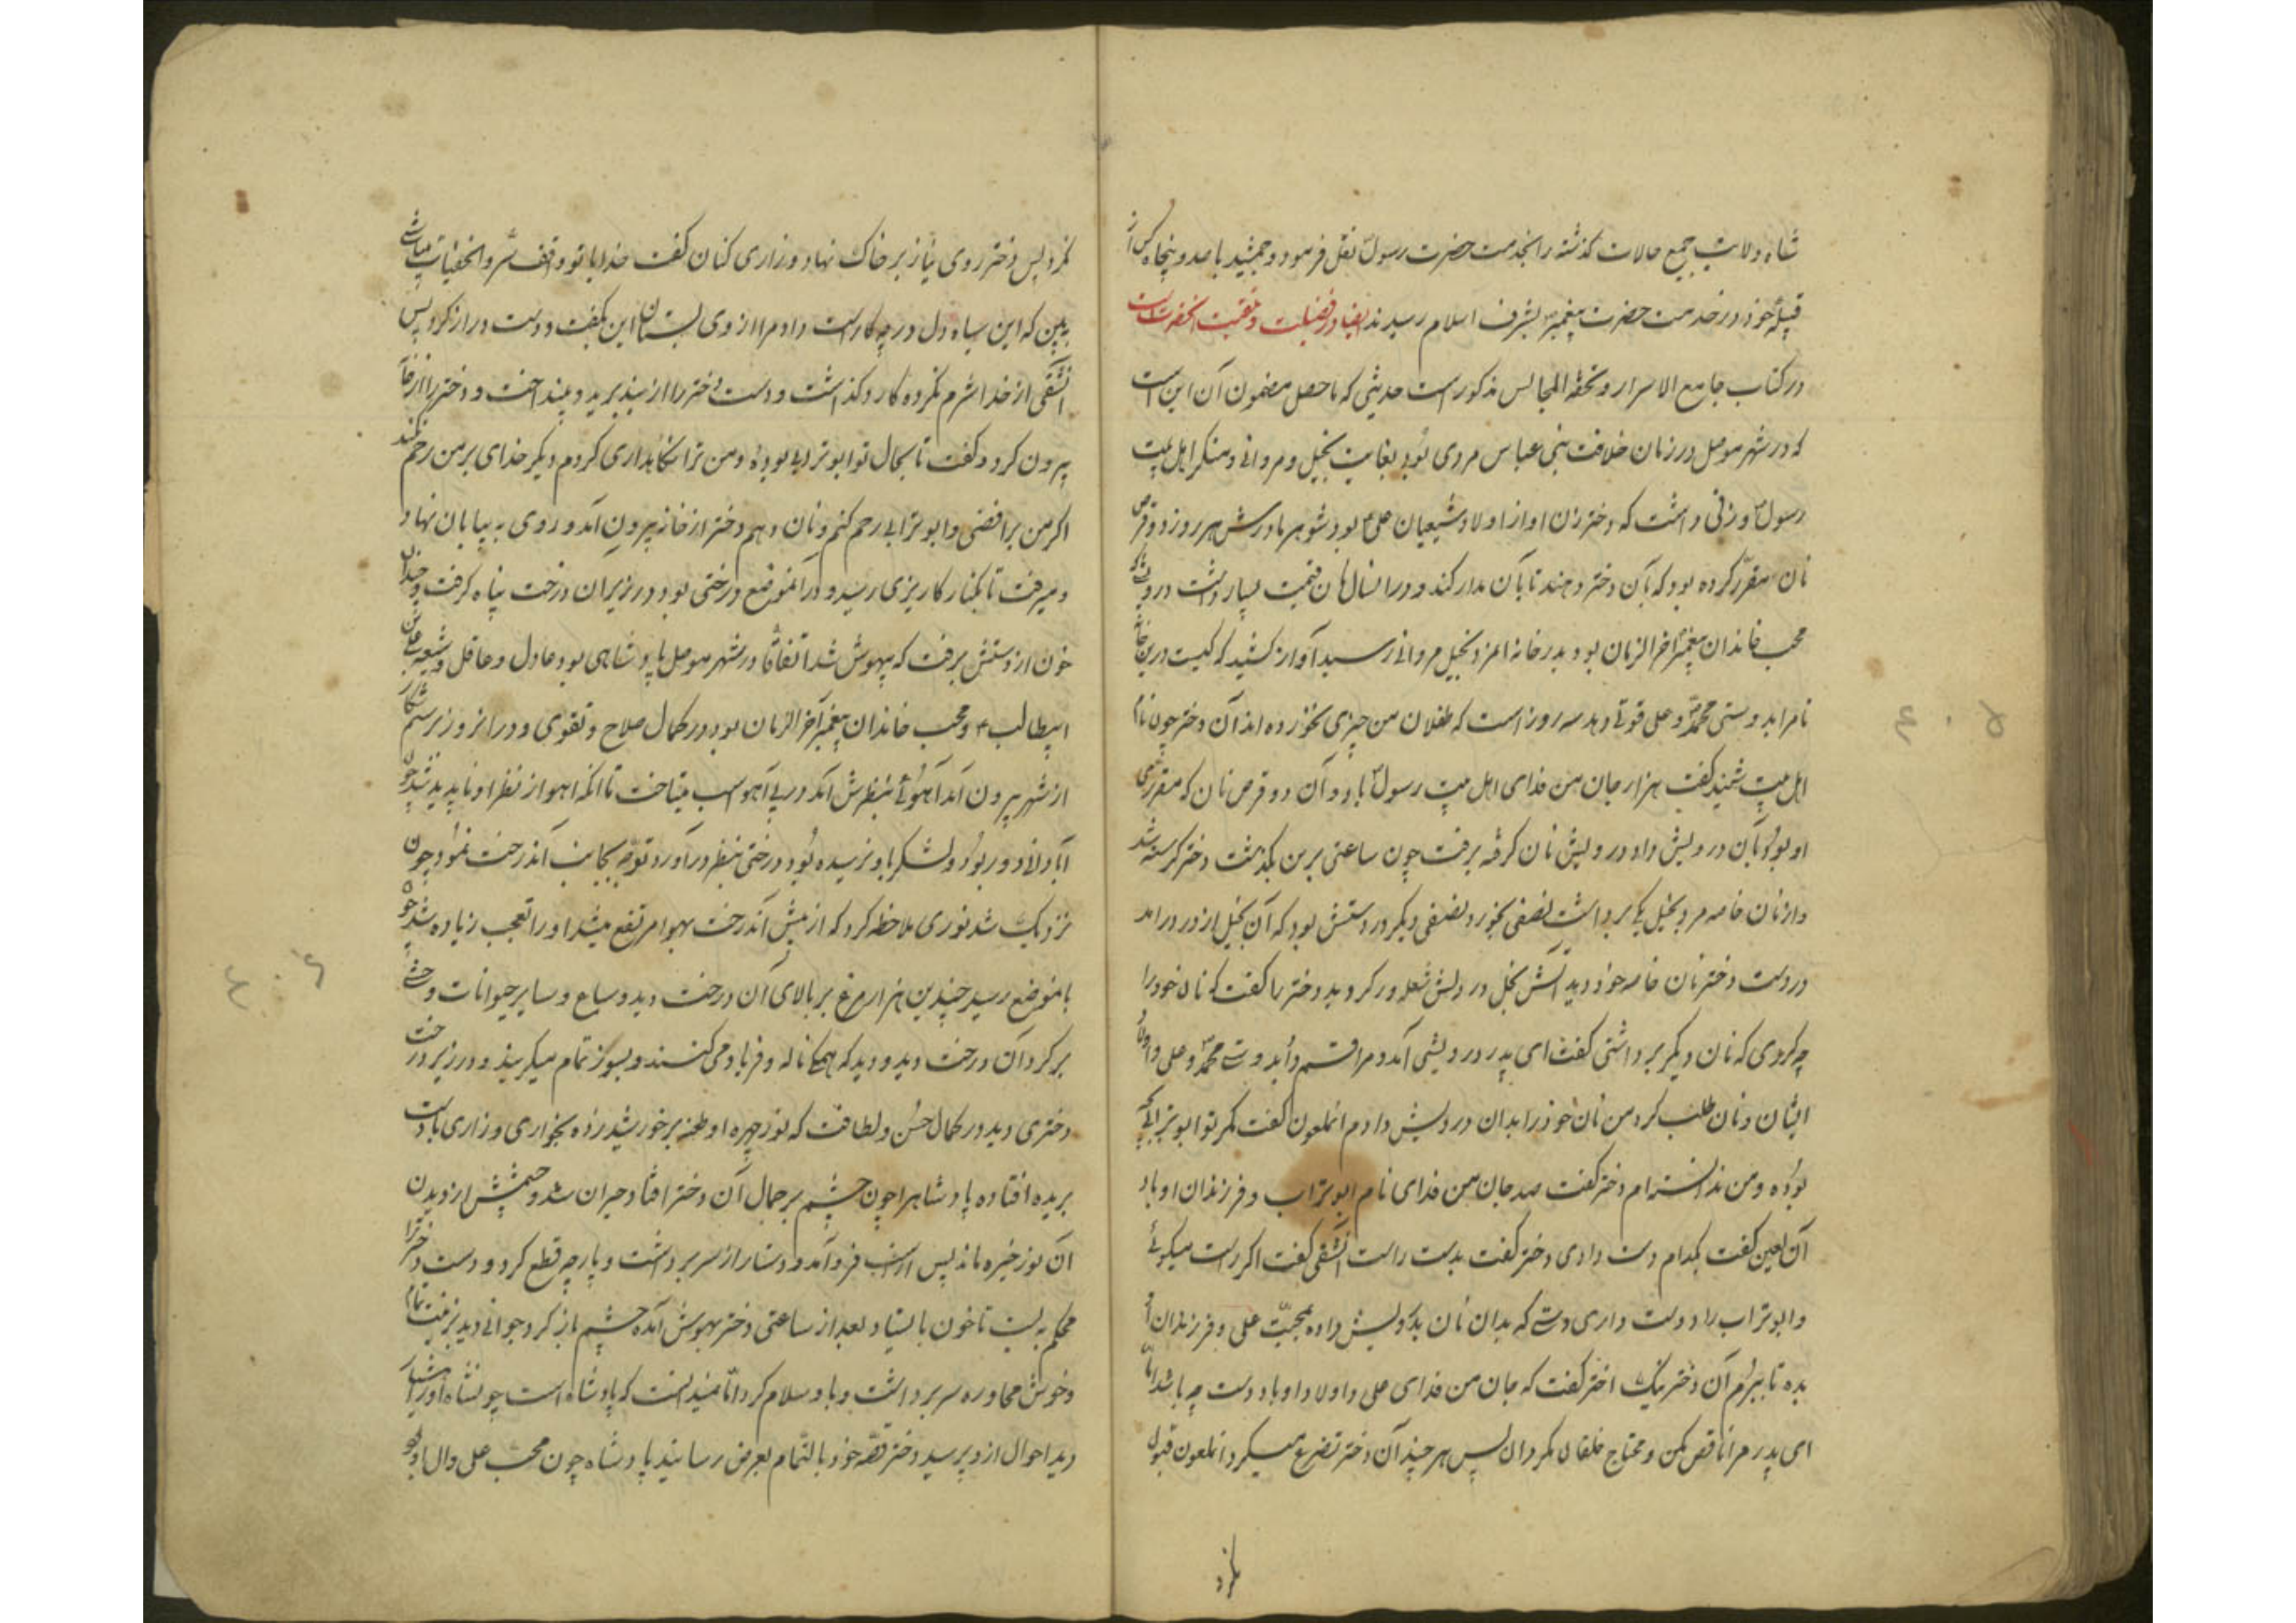 شاه ولایت جمیع حالات گذشته را بخدمت حضرت رسول نقل فرمود و جمشید با صد و پنجاه کس از
قبیله خود در خدمت حضرت پیغمبر بشرف اسلام رسیدند ایضا در فضیلت و منقبت آنحضرت است
در کتاب جامع الاسرار و تحفة المجالس مذکور است حدیثی که ماحصل مضمون آن این است
که در شهر موصل در زمان خلافت بنی عباس مردی بود بغایت بخیل و مروانی و منکر اهل بیت
رسول و زنی داشت که دختر زن او از اولاد شیعیان علی بود شوهر مادرش هر روز دو قرص
نان مقرر کرده بود که بآن دختر دهند تا بآن مدار کند و در انسال نان قیمت بسیار داشت درویشی که
محب خاندان پیغمبر آخر الزمان بود بدر خانه آنمرد بخیل مروانی رسید آواز کشید که کیست درین خانه
تا مرا بدوستی محمد و علی قوتی دهد سه روز است که طفلان من چیزی نخورده اند آن دختر چون نام
اهل بیت شنید گفت هزار جان من فدای اهل بیت رسول باد و آن دو قرص نان که مقرری
او بود بآن درویش داد درویش نان گرفته برفت چون ساعتی برین بگذشت دختر گرسنه شد
و از نان خاصه مرد بخیل یکی برداشت نصفی بخورد و نصفی دیگر در دستش بود که آن بخیل از در درامد
در دست دختر نان خاصه خود دید آتش بخل در دلش شعله ور گردید دختر را گفت که نان خود را
چه کردی که نان دیگر برداشتی گفت ای پدر درویشی آمد و مرا قسم داد بدوستی محمد و علی و اولاد
ایشان و نان طلب کرد من نان خود را بدان درویش دادم انملعون گفت مگر تو ابوترابی
بوده و من ندانسته ام دختر گفت صد جان من فدای نام ابوتراب و فرزندان او باد
آن لعین گفت بکدام دست دادی دختر گفت بدست راست آنشقی گفت اگر راست میگوئی
و ابوتراب را دوست داری دستی که بدان نان بدرویش داده بمحبت علی و فرزندان او
بده تا ببرم آن دختر نیک اختر گفت که جان من فدای علی و اولاد او باد دست چه باشد اما
ای پدر مرا ناقص مکن و محتاج خلقان مگردان پس هر چند آن دختر تضرع میکرد انملعون قبول
نکرد
نکرد پس دختر روی نیاز بر خاک نهاد و زاری کنان گفت خدایا تو واقف سر و الخفیات میباشی
به بین که این سیاه دل در چه کار است داد مرا از وی بستان این بگفت و دست دراز کرد پس
آنشقی از خدا شرم نکرده کارد کذاشت و دست دختر را از بند برید و بینداخت و دختر را از خانه
بیرون کرد و گفت تا بحال تو ابوترابی بوده و من ترا نگاهداری کردم دیگر خدای بر من رحم نکند
اگر من برافضی و ابوترابی رحم کنم و نان دهم دختر از خانه بیرون آمد و روی به بیابان نهاد
و میرفت تا بکنار کاریزی رسید و در آنموضع درختی بود در زیر آن درخت پناه گرفت و چندان
خون از دستش برفت که بیهوش شد اتفاقا در شهر موصل پادشاهی بود عادل و عاقل و شیعه علی بن
ابیطالب و محب خاندان پیغمبر آخر الزمان بود در کمال صلاح و تقوی و در انروز برسم شکار
از شهر بیرون آمد آهوئی بنظرش آمد در پی آهو اسب میتاخت تا آنکه اهو از نظر او ناپدید شد چون
آبادانی دور بود و لشکر باو نرسیده بود درختی بنظر درآورد توجه بجانب آندرخت نمود چون
نزدیک شد نوری ملاحظه کرد که از پیش آندرخت بهوا مرتفع میشد او را تعجب زیاده شد چون
بانموضع رسید چندین هزار مرغ بر بالای آن درخت دید و سباع و سایر حیوانات وحشی
بر گرد آن درخت دید و دید که همگی ناله و فریاد می کنند و بسوز تمام میگریند و در زیر درخت
دختری دید در کمال حسن و لطافت که نور چهره او طعنه بر خورشید زده بخواری و زاری با دست
بریده افتاده پادشاه را چون چشم بر جمال آن دختر افتاد حیران شد و چشمش از دیدن
آن نور خیره ماند پس از اسب فرود آمد و دستار از سر برداشت و پارچه قطع کرد و دست دختر را
محکم به بست تا خون باستاد بعد از ساعتی دختر بهوش آمده چشم باز کرد جوانی دید بزینت تمام
و خوش محاوره سر برداشت و باو سلام کرد اما نمیدانست که پادشاه است چون شاه او را هشیار
دید احوال ازو پرسید دختر قصه خود بالتمام بعرض رسانید پادشاه چون محب علی و آل او بود